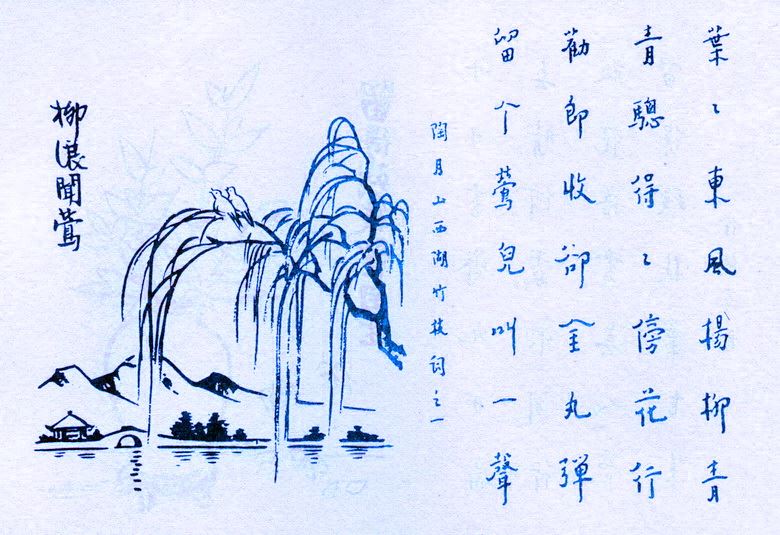 葉〻東風楊柳青
青驄得〻傍花行
勸郎收卻金丸彈
留个鶯兒叫一聲
陶月山西湖竹枝詞之一
柳浪聞鶯